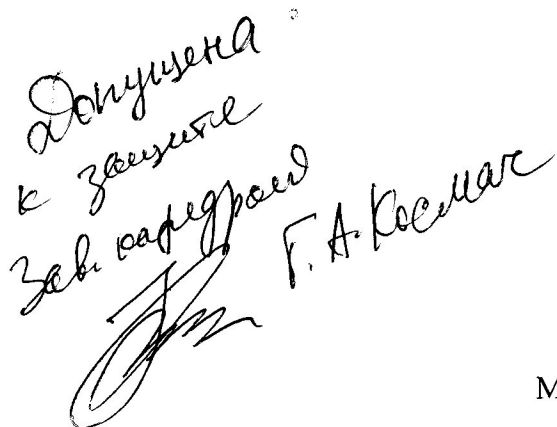 Допущена
к защите
Зав. кафедрой
Г. А. Космач
М